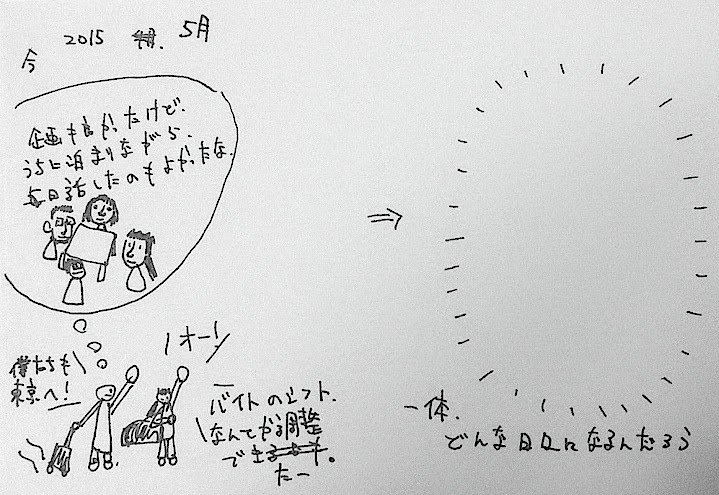 今 2015 5月
企画も良かったけど、
うちに泊まりながら、
5日話したのもよかったな。
オー!
僕たちも
東京へ!
バイトのシフト、
なんとか調整
できる
たー
一体、
どんな日々になるんだろう